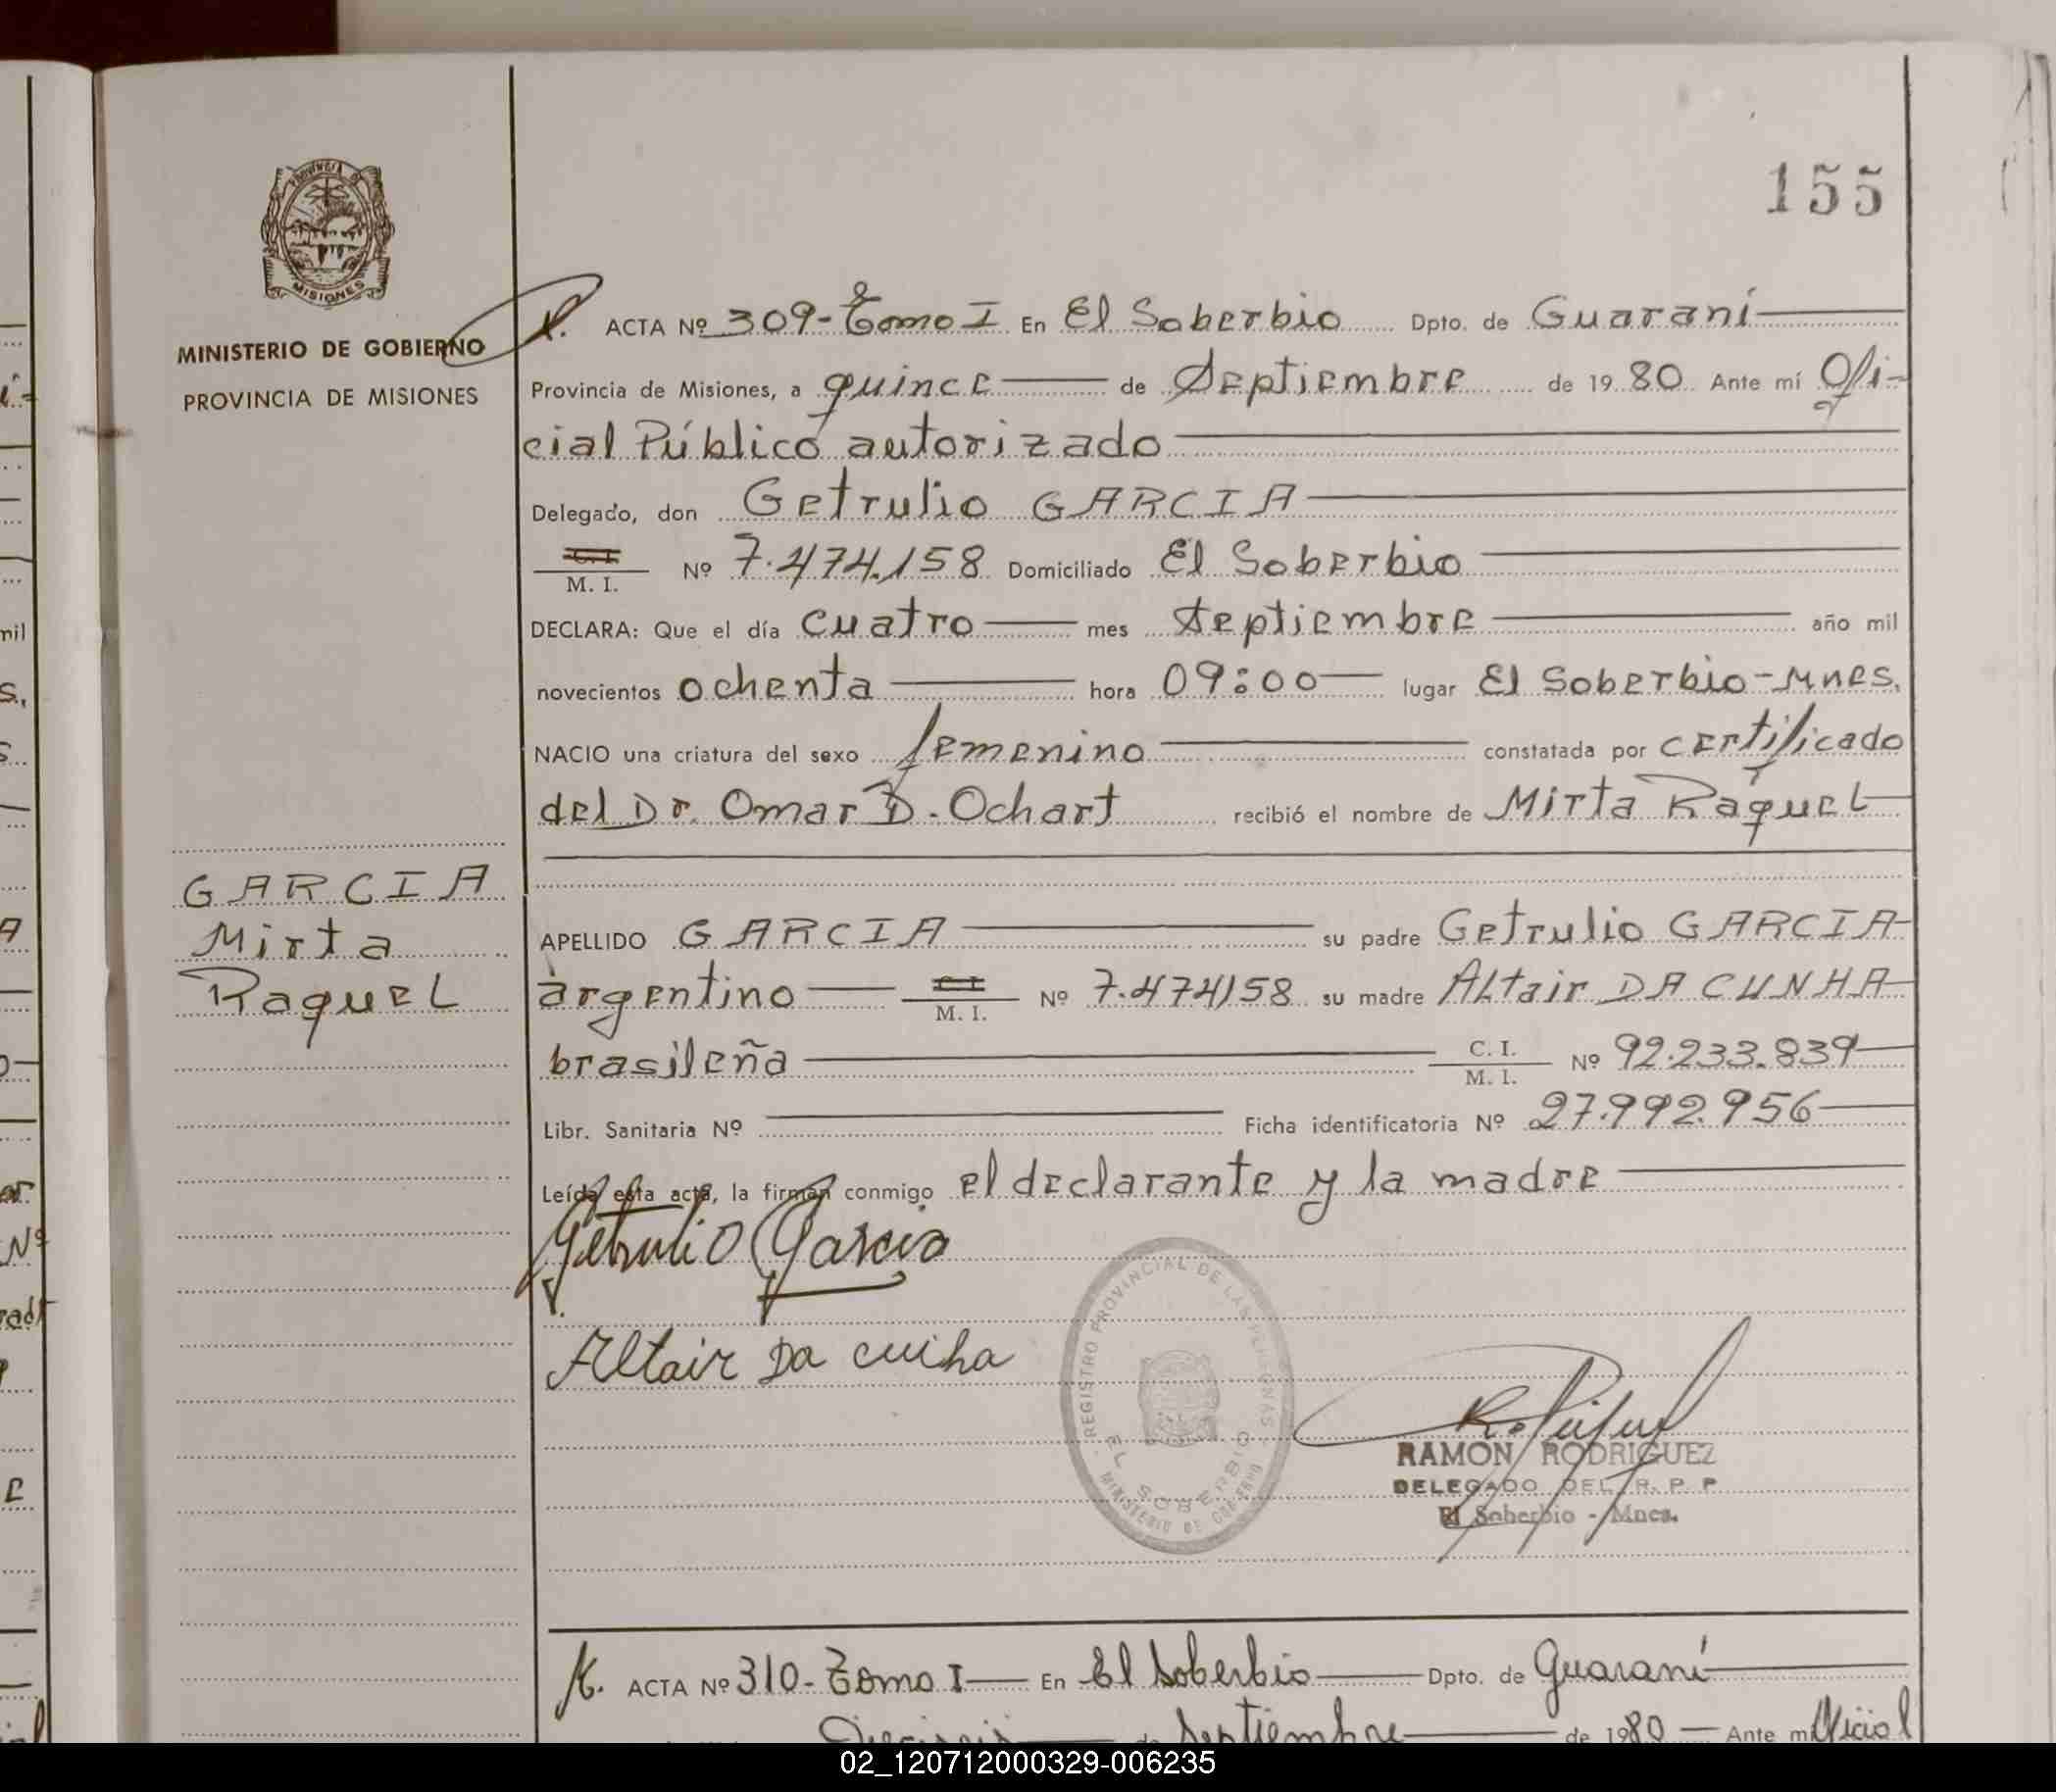 155
PROVINCIA DE
MISIONES
MINISTERIO DE GOBIERNO
PROVINCIA DE MISIONES
ACTA Nº 309-Tomo I En El Soberbio Dpto. de Guaraní
Provincia de Misiones, a quince de Septiembre de 19 80 Ante mí Ofi-
cial Público autorizado
Delegado, don Getrulio GARCIA
C. I.
M. I. Nº 7.474.158 Domiciliado El Soberbio
DECLARA: Que el día cuatro mes septiembre año mil
novecientos ochenta hora 09:00 lugar El Soberbio-Mnes.
NACIO una criatura del sexo femenino constatada por certificado
del Dr. Omar D. Ochart recibió el nombre de Mirta Raquel
GARCIA
Mirta
Raquel
APELLIDO GARCIA su padre Getrulio GARCIA
argentino C. I. M. I. Nº 7.474158 su madre Altair DA CUNHA
brasileña C. I. M. I. Nº 92.233.839
Libr. Sanitaria Nº Ficha identificatoria Nº 27.992.956
Leída esta acta, la firman conmigo el declarante y la madre
Getrulio Garcia
Altair Da cunha
REGISTRO PROVINCIAL DE LAS PERSONAS
EL SOBERBIO
MINISTERIO DE GOBIERNO
RAMON RODRIGUEZ
DELEGADO DEL R. P. P
El Soberbio - Mnes.
ACTA Nº 310-Tomo I En El Soberbio Dpto. de Guaraní
Dieciseis de Septiembre de 1980 Ante mí Oficial
02_120712000329-006235